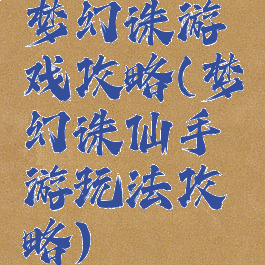 梦幻诛游
戏攻略(梦
幻诛仙手
游玩法攻
略)